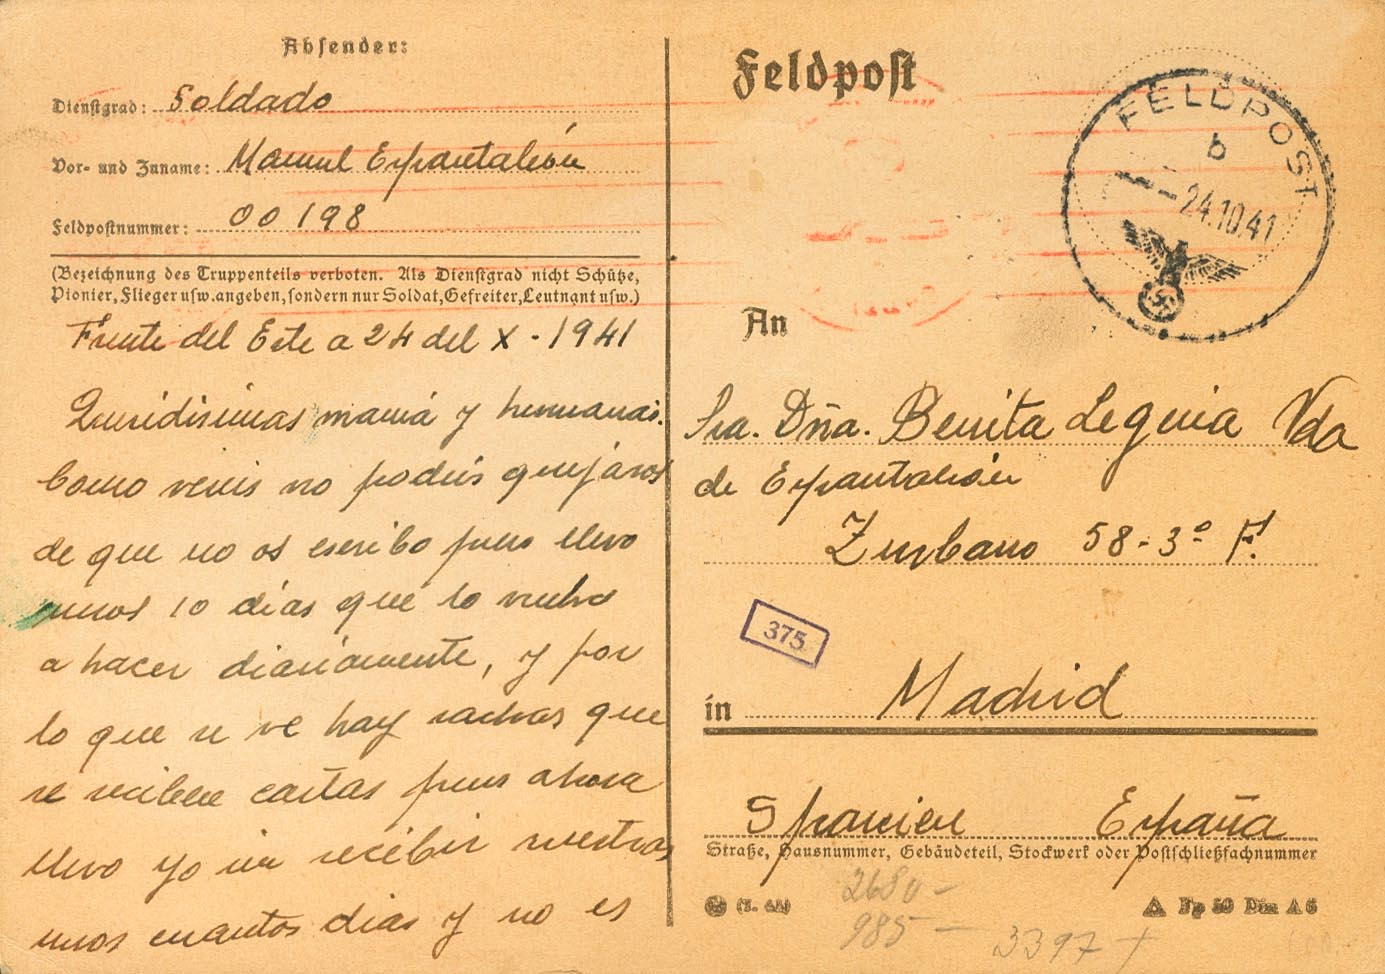 Absender:
Dienstgrad: Soldado
Vor- und Zuname: Manuel Espantaleón
Feldpostnummer: 00198
(Bezeichnung des Truppenteils verboten. Als Dienstgrad nicht Schütze,
Pionier, Flieger usw. angeben, sondern nur Soldat, Gefreiter, Leutnant usw.)
Frente del Este a 24 del X - 1941
Queridisimas mamá y hermanas.
Como vereis no podeis quejaros
de que no os escribo pues llevo
unos 10 dias que lo vuelvo
a hacer diariamente, y por
lo que se ve hay rachas que
se reciben cartas pues ahora
llevo yo sin recibir vuestras
unos cuantos dias y no es
Feldpost
FELDPOST
b
24.10.41
An
Sra. Dña. Benita Leguia Vda
de Espantaleón
Zurbano 58-3º F.
375
in Madrid
Spanien España
Straße, Hausnummer, Gebäudeteil, Stockwerk oder Postschließfachnummer
Fp 50 Din A 6
2680-
985-
3397+